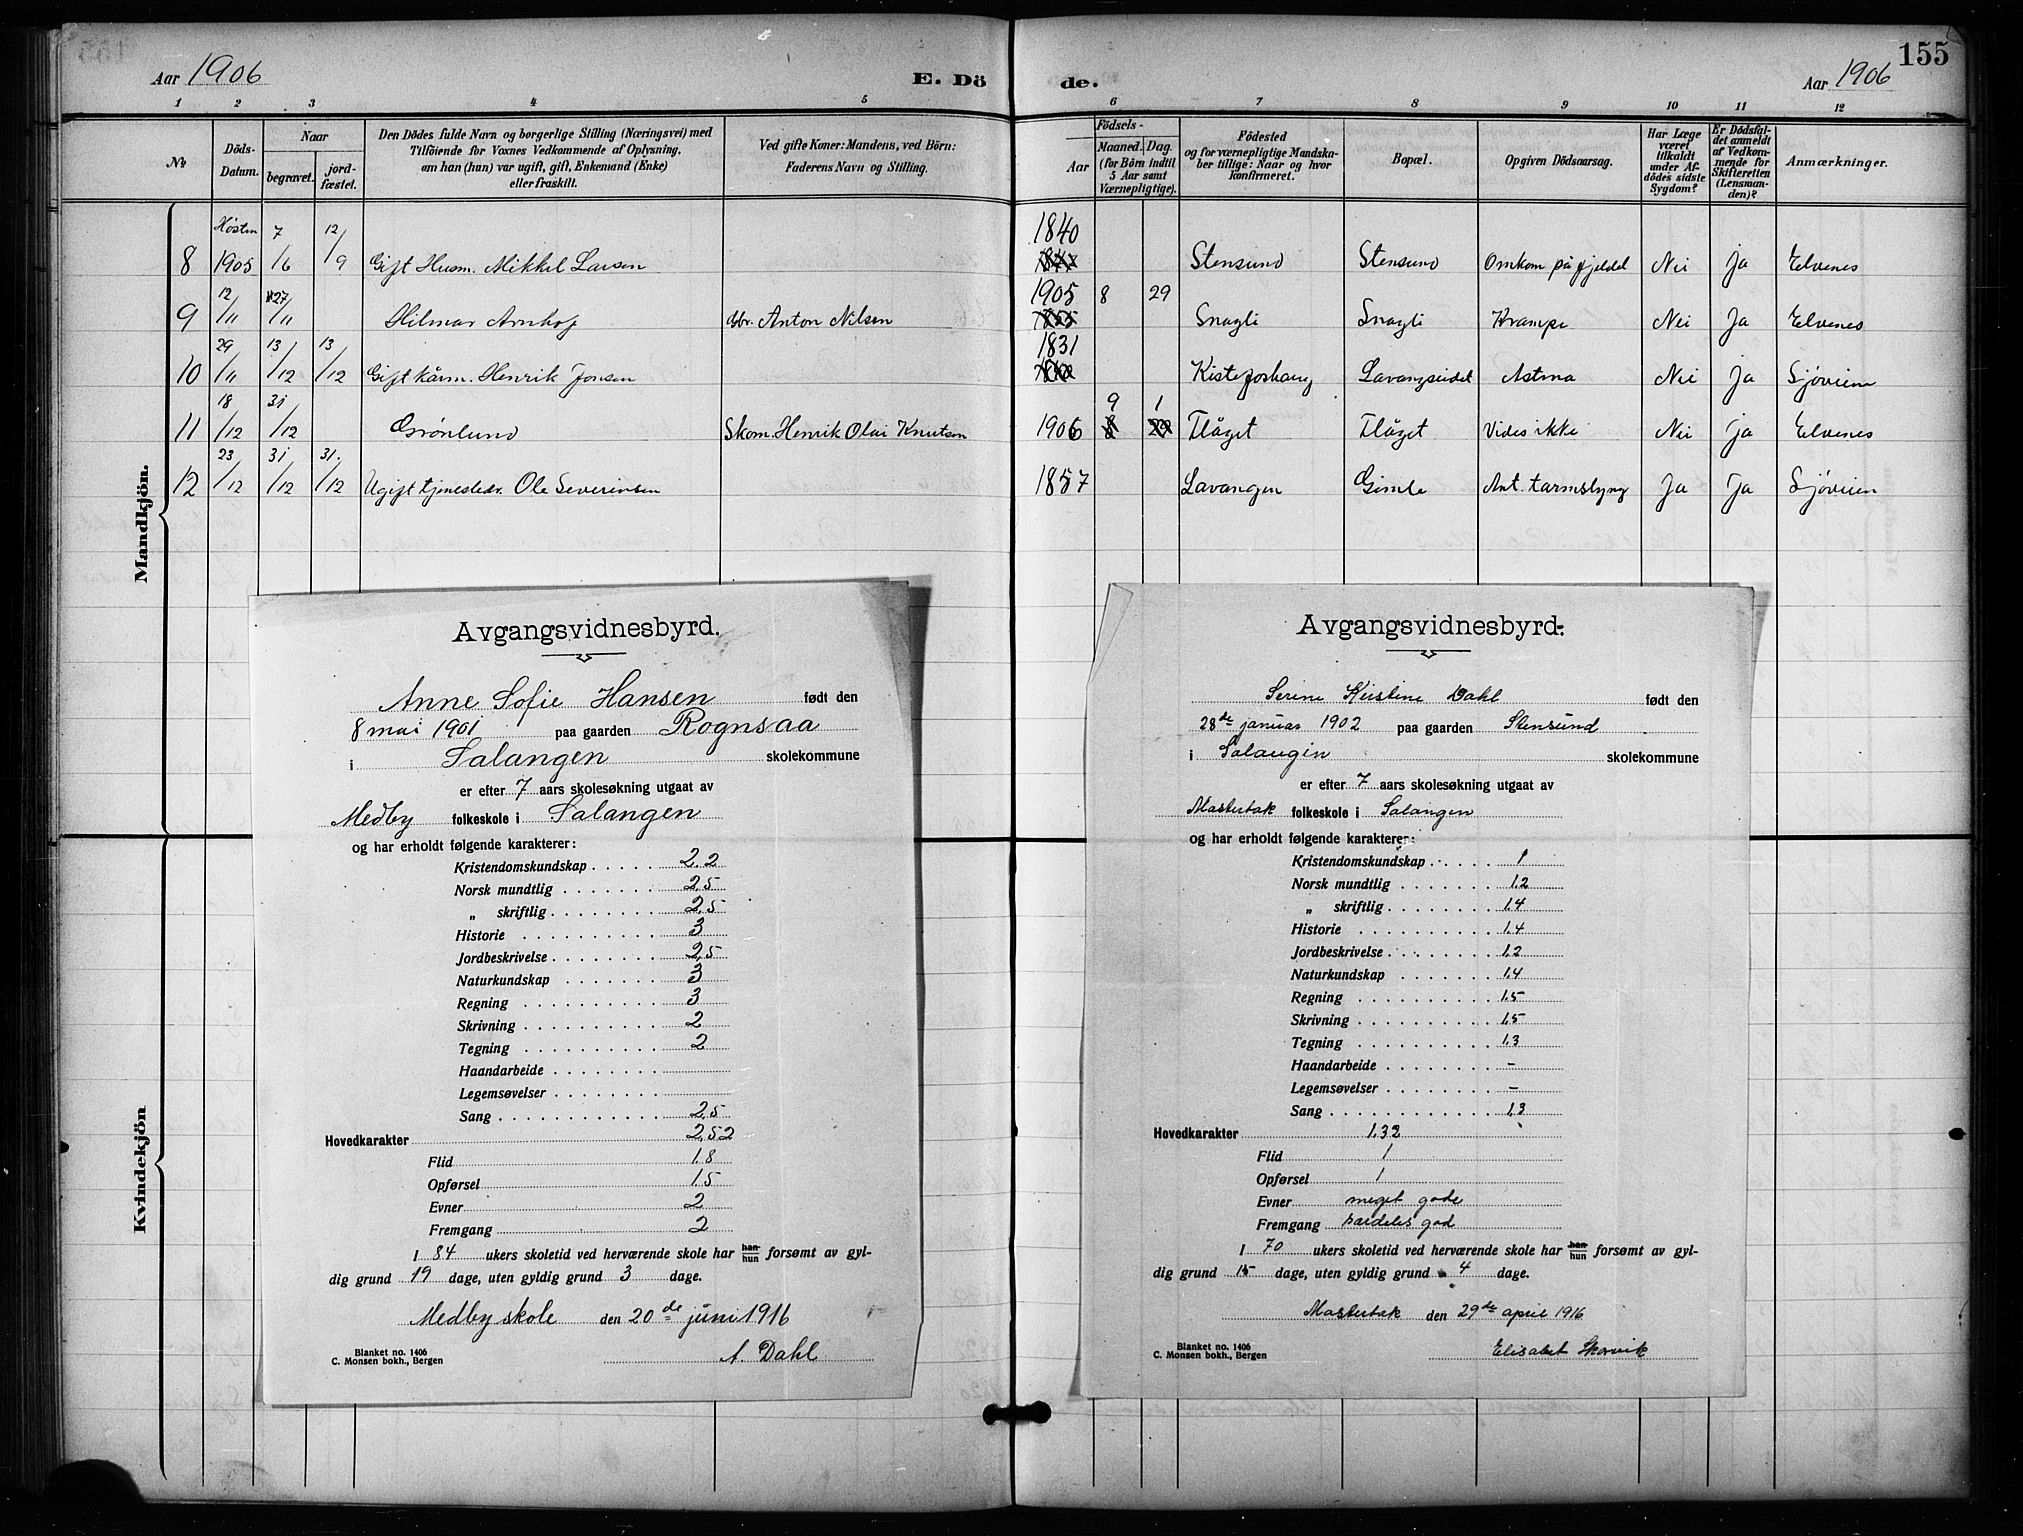 155
Aar 1906
E. Dö
de.
Aar 1906
1 2 3 4 5 6 7 8 9 10 11 12
№
Döds-
Datum.
Naar
begravet.
jord-
fæstet.
Den Dödes fulde Navn og borgerlige Stilling (Næringsvei) med
Tilföiende for Voxnes Vedkommende af Oplysning,
om han (hun) var ugift, gift, Enkemand (Enke)
eller fraskilt.
Ved gifte Koner: Mandens, ved Börn:
Faderens Navn og Stilling.
Födsels-
Aar
Maaned. Dag.
(for Börn indtil
5 Aar samt
Værnepligtige).
Födested
og for værnepligtige Mandska-
ber tillige: Naar og hvor
konfirmeret.
Bopæl.
Opgiven Dödsaarsag.
Har Læge
været
tilkaldt
under Af-
dödes sidste
Sygdom?
Er Dödsfal-
det anmeldt
af Vedkom-
mende for
Skifteretten
(Lensman-
den)?
Anmærkninger.
Mandkjön.
Høsten 7 12 1840
8 1905 /6 /9 Gift Husm. Mikkel Larsen Stensund Stensund Omkom på fjeldet Nei Ja Elvenes
12 27 1905 8 29
9 /11 /11 Hilmar Arnhof Gbr. Anton Nilsen Snagli Snagli Krampe Nei Ja Elvenes
29 13 13 1831
10 /11 /12 /12 Gift kårm. Henrik Jonsen Lavangseidet Astma Nei Ja Sjøveien
18 31 9 1
11 /12 /12 Grønlund Skom. Henrik Olai Knutsen 1906 8 29 Flåget Flåget Vides ikke Nei Ja Elvenes
23 31 31.
12 /12 /12 /12 Ugift tjenestedr. Ole Severinsen 1857 Lavangen Gimle Ant. tarmslyng Ja Ja Sjøveien
Kvindekjön
Avgangsvidnesbyrd.
Anne Sofie Hansen født den
8 mai 1901 paa gaarden Rognsaa
i Salangen skolekommune
er efter 7 aars skolesøkning utgaat av
Medby folkeskole i Salangen
og har erholdt følgende karakterer:
Kristendomskundskap 2.2
Norsk mundtlig 2,5
„ skriftlig 2,5
Historie 3
Jordbeskrivelse 2,5
Naturkundskap 3
Regning 3
Skrivning 2
Tegning 2
Haandarbeide
Legemsøvelser
Sang 2,5
Hovedkarakter 2,52
Flid 1,8
Opførsel 1,5
Evner 2
Fremgang 2
I 84 ukers skoletid ved herværende skole har han/hun forsømt av gyl-
dig grund 19 dage, uten gyldig grund 3 dage.
Medby skole den 20de juni 1916
A. Dahl
Blanket no. 1406
C. Monsen bokh., Bergen
Avgangsvidnesbyrd.
Serine Kristine Dahl født den
28de januar 1902 paa gaarden Stensund
i Salangen skolekommune
er efter 7 aars skolesøkning utgaat av
Masterbak folkeskole i Salangen
og har erholdt følgende karakterer:
Kristendomskundskap 1
Norsk mundtlig 1,2
„ skriftlig 1,4
Historie 1,4
Jordbeskrivelse 1,2
Naturkundskap 1,4
Regning 1,5
Skrivning 1,5
Tegning 1,3
Haandarbeide –
Legemsøvelser –
Sang 1,3
Hovedkarakter 1,32
Flid 1
Opførsel 1
Evner meget gode
Fremgang særdeles god
I 70 ukers skoletid ved herværende skole har han/hun forsømt av gyl-
dig grund 15 dage, uten gyldig grund 4 dage.
Masterbak den 29de april 1916
Elisabet Skorvik
Blanket no. 1406
C. Monsen bokh., Bergen